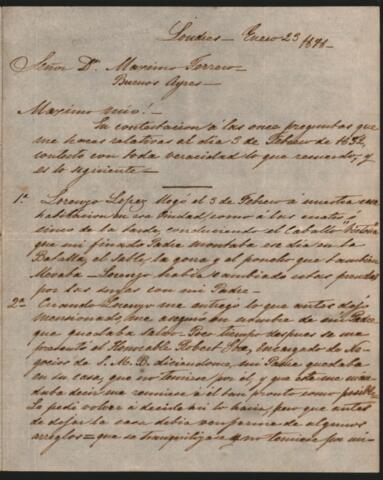 Londres - Enero 23 1898 -
Señor Dn. Maximo Terrero -
Buenos Ayres -
Maximo mio! -
En contestacion á las once preguntas que
me haces relativas al dia 3 de Febrero de 1852,
contesto con toda veracidad lo que recuerdo, y
es lo siguiente -
1ª Lorenzo Lopez llegó el 3 de Febrero á nuestra
habitacion en esa Ciudad, como á las cuatro ó
cinco de la tarde, conduciendo el Caballo
que mi finado Padre montaba ese dia en la
Batalla, el sable, la gorra y el poncho que tambien
llevaba - Lorenzo habia cambiado estas prendas
por las suyas con mi Padre -
2ª Cuando Lorenzo me entregó lo que antes dejo
mencionado, me aseguró en nombre de mi Padre
que quedaba salvo - Poco tiempo despues se me
presentó el Honorable Robert Gore, Encargado de Ne-
gocios de S. M. B. diciendome, mi Padre quedaba
en su casa, que no temiese por el, y que me man-
daba decir me reuniese á el tan pronto como posible
Le pedi volver á decirle asi lo haria, pero que antes
de dejar la casa debia ocuparme de algunos
arreglos = que se tranquilizase y no temiese por mi -